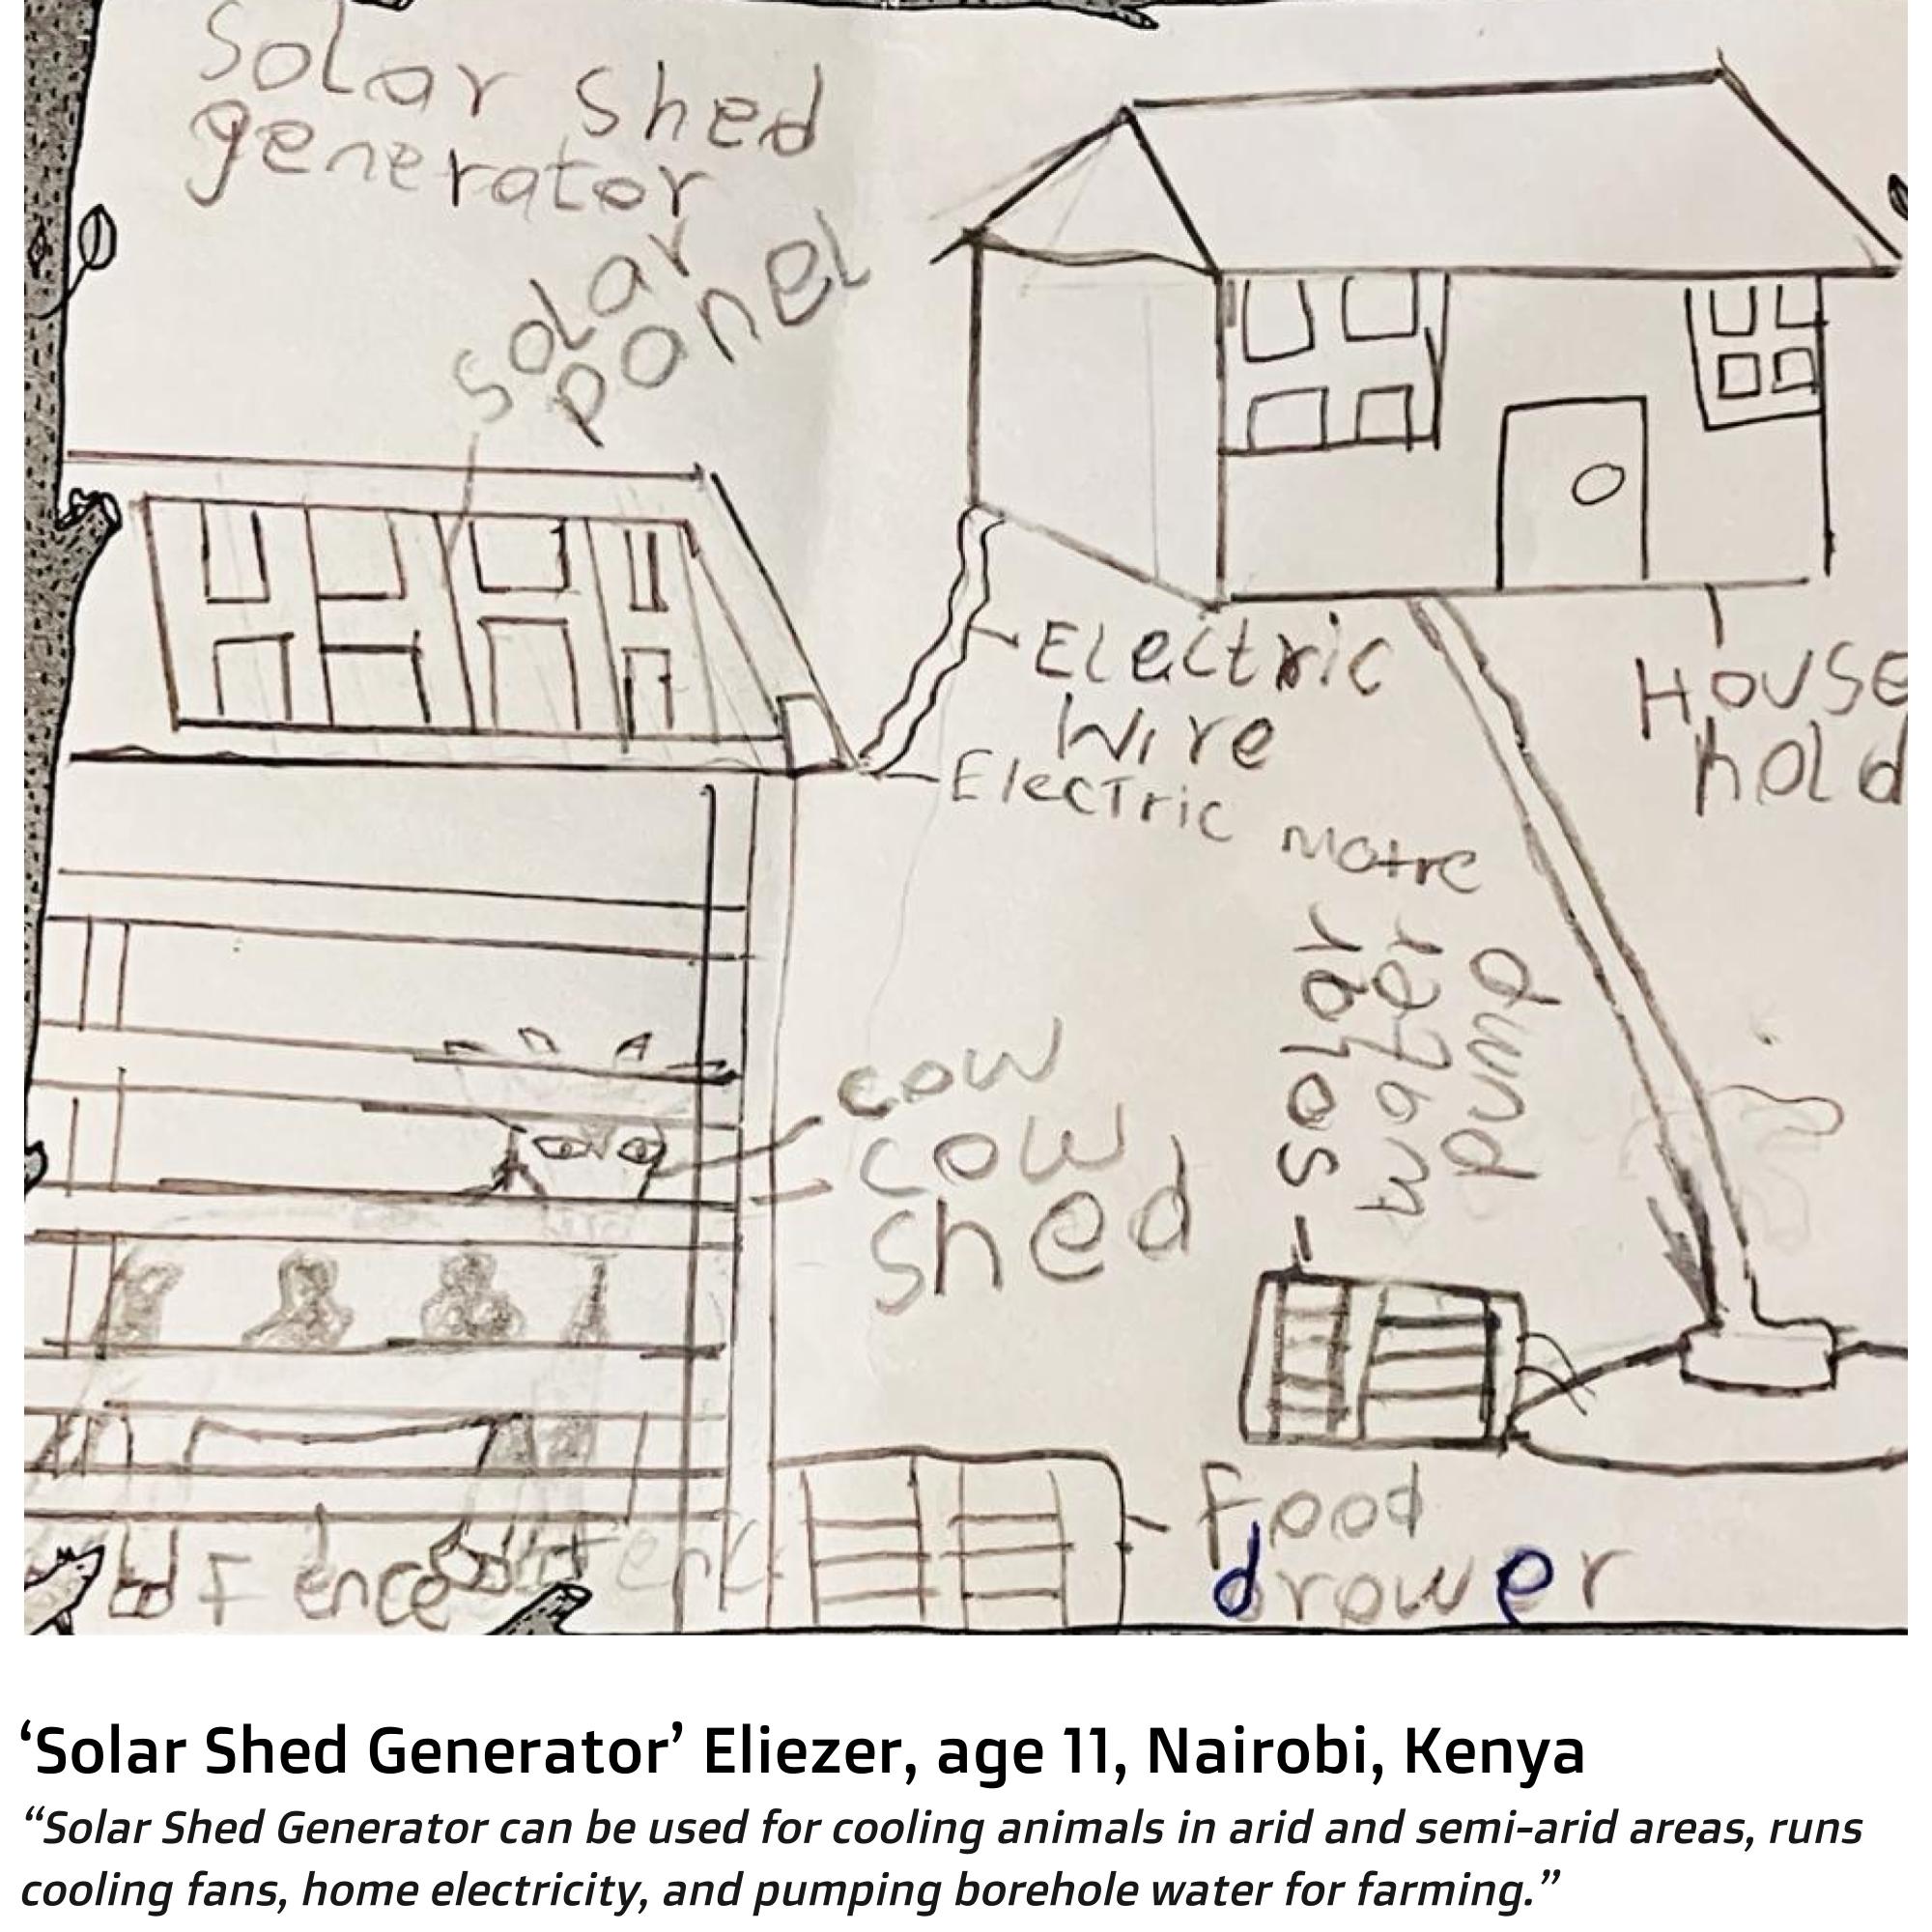 Solar shed
generator
solar
panel
Electric
Wire
Electric
motre
House
hold
solar
water
pump
cow
cow
shed
Food
drower
Fence
‘Solar Shed Generator’ Eliezer, age 11, Nairobi, Kenya
“Solar Shed Generator can be used for cooling animals in arid and semi-arid areas, runs
cooling fans, home electricity, and pumping borehole water for farming.”